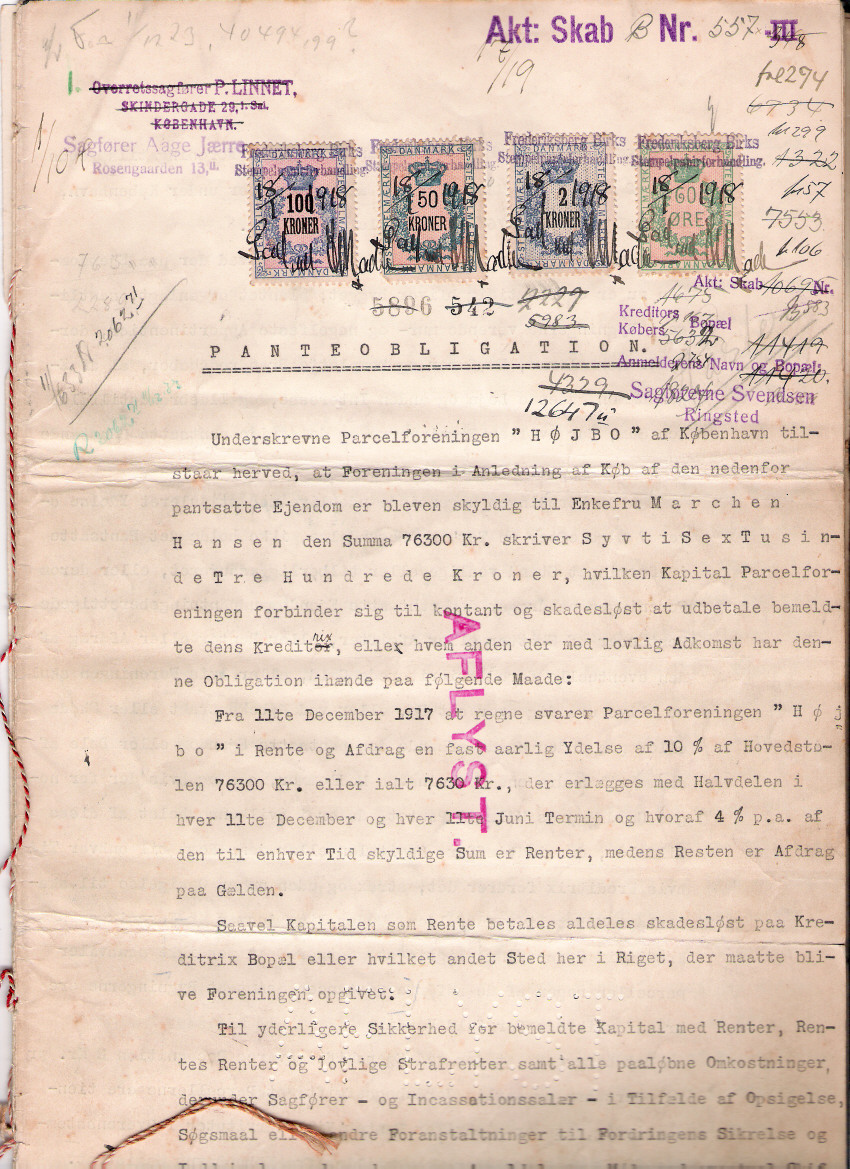 Akt: Skab B Nr. 557
1. Overretssagfører P. LINNET,
SKINDERGADE 29, 1. Sal.
KØBENHAVN.
Sagfører Aage Jærre
Rosengaarden 13,
Frederiksberg Birks
Stempelpapirforhandling.
Frederiksberg Birks
Stempelpapirforhandling.
Frederiksberg Birks
Stempelpapirforhandling.
Frederiksberg Birks
Stempelpapirforhandling.
DANMARK
100
KRONER
18/1 1918
DANMARK
50
KRONER
18/1 1918
DANMARK
2
KRONER
18/1 1918
60
ØRE
18/1 1918
294
299
4322
57
7553
106
5896 542 2229
5983
Akt: Skab Nr.
Kreditors
Købers Bopæl
Anmelderens Navn og Bopæl:
Sagførerne Svendsen
Ringsted
PANTEOBLIGATION.
4229
12647
Underskrevne Parcelforeningen "HØJBO" af København til-
staar herved, at Foreningen i Anledning af Køb af den nedenfor
pantsatte Ejendom er bleven skyldig til Enkefru Marchen
Hansen den Summa 76300 Kr. skriver SyvtiSexTusin-
deTre Hundrede Kroner, hvilken Kapital Parcelfor-
eningen forbinder sig til kontant og skadesløst at udbetale bemeld-
te dens Kreditrix, eller hvem anden der med lovlig Adkomst har den-
ne Obligation ihænde paa følgende Maade:
Fra 11te December 1917 at regne svarer Parcelforeningen "Høj
bo" i Rente og Afdrag en fast aarlig Ydelse af 10 % af Hovedsto-
len 76300 Kr. eller ialt 7630 Kr., der erlægges med Halvdelen i
hver 11te December og hver 11te Juni Termin og hvoraf 4 % p.a. af
den til enhver Tid skyldige Sum er Renter, medens Resten er Afdrag
paa Gælden.
Saavel Kapitalen som Rente betales aldeles skadesløst paa Kre-
ditrix Bopæl eller hvilket andet Sted her i Riget, der maatte bli-
ve Foreningen opgivet.
Til yderligere Sikkerhed for bemeldte Kapital med Renter, Ren-
tes Renter og lovlige Strafrenter samt alle paaløbne Omkostninger,
derunder Sagfører - og Incassationssalær - i Tilfælde af Opsigelse,
Søgsmaal eller andre Foranstaltninger til Fordringens Sikrelse og
AFLYST.